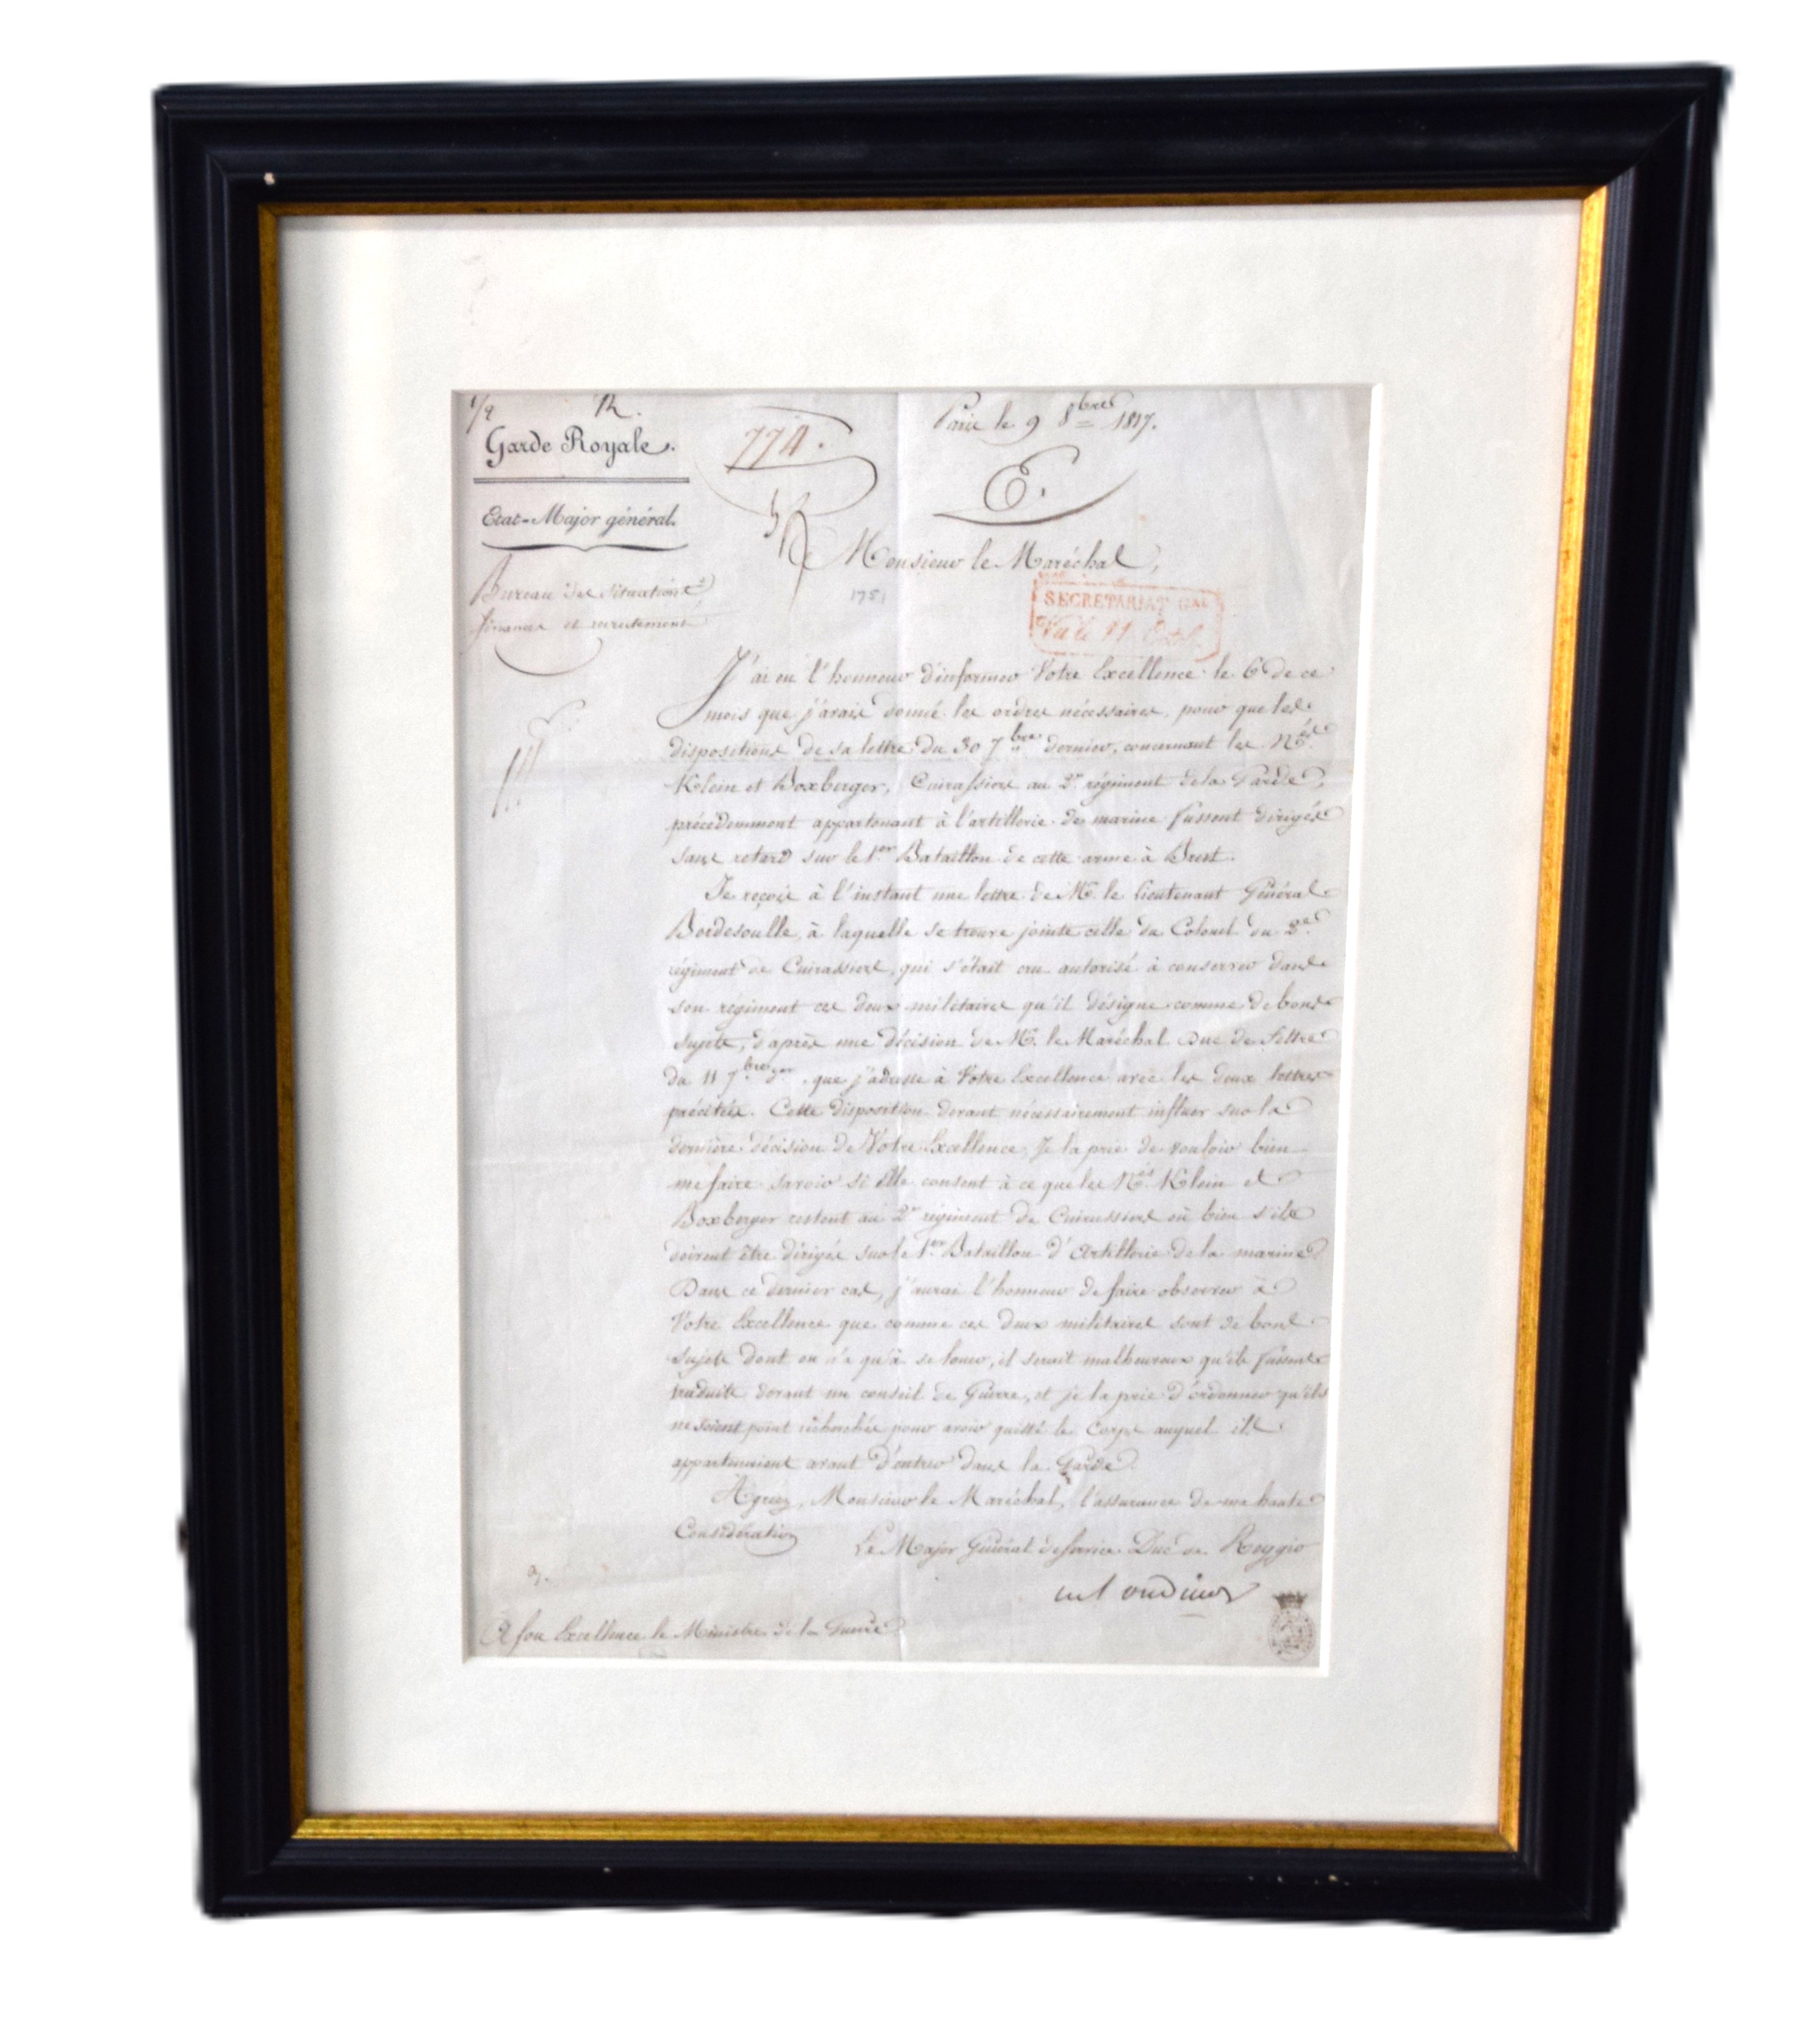 Garde Royale.
Etat-Major général.
Bureau des Situations
finances et recrutement
774.
Paris le 9 8bre 1817.
E.
Monsieur le Maréchal,
1751
SECRETARIAT GAL
11
J'ai eu l'honneur d'informer Votre Excellence le 6 de ce
mois que j'avais donné les ordres nécessaires, pour que les
dispositions de sa lettre du 30 7bre dernier, concernant les Nés
Klein et Boxberger, Cuirassiers au 2e régiment de la Garde,
précédemment appartenant à l'artillerie de marine fussent dirigés
sans retard sur le 1er Bataillon de cette arme à Brest.
Je reçois à l'instant une lettre de Mr. le Lieutenant Général
Bordesoulle, à laquelle se trouve jointe celle du Colonel du 2e
régiment de Cuirassiers, qui s'était cru autorisé à conserver dans
son régiment ces deux militaires qu'il désigne comme de bons
sujets, d'après une décision de Mr. le Maréchal Duc de Feltre
du 11 7bre der, que j'adresse à Votre Excellence avec les deux lettres
précitées. Cette disposition devant nécessairement influer sur la
dernière décision de Votre Excellence, Je la prie de vouloir bien
me faire savoir si Elle consent à ce que les Nés Klein et
Boxberger restent au 2e régiment de Cuirassiers où bien s'ils
doivent être dirigés sur le 1er Bataillon d'Artillerie de la marine
Dans ce dernier cas, j'aurai l'honneur de faire observer à
Votre Excellence que comme ces deux militaires sont de bons
sujets dont on n'a qu'à se louer, il serait malheureux qu'ils fussent
traduits devant un conseil de Guerre, et je la prie d'ordonner qu'ils
ne soient point recherchés pour avoir quitté le Corps auquel ils
appartenaient avant d'entrer dans la Garde.
Agréez, Monsieur le Maréchal, l'assurance de ma haute
Considération
Le Major Général de service Duc de Reggio
Oudinot
A son Excellence le Ministre de la Guerre